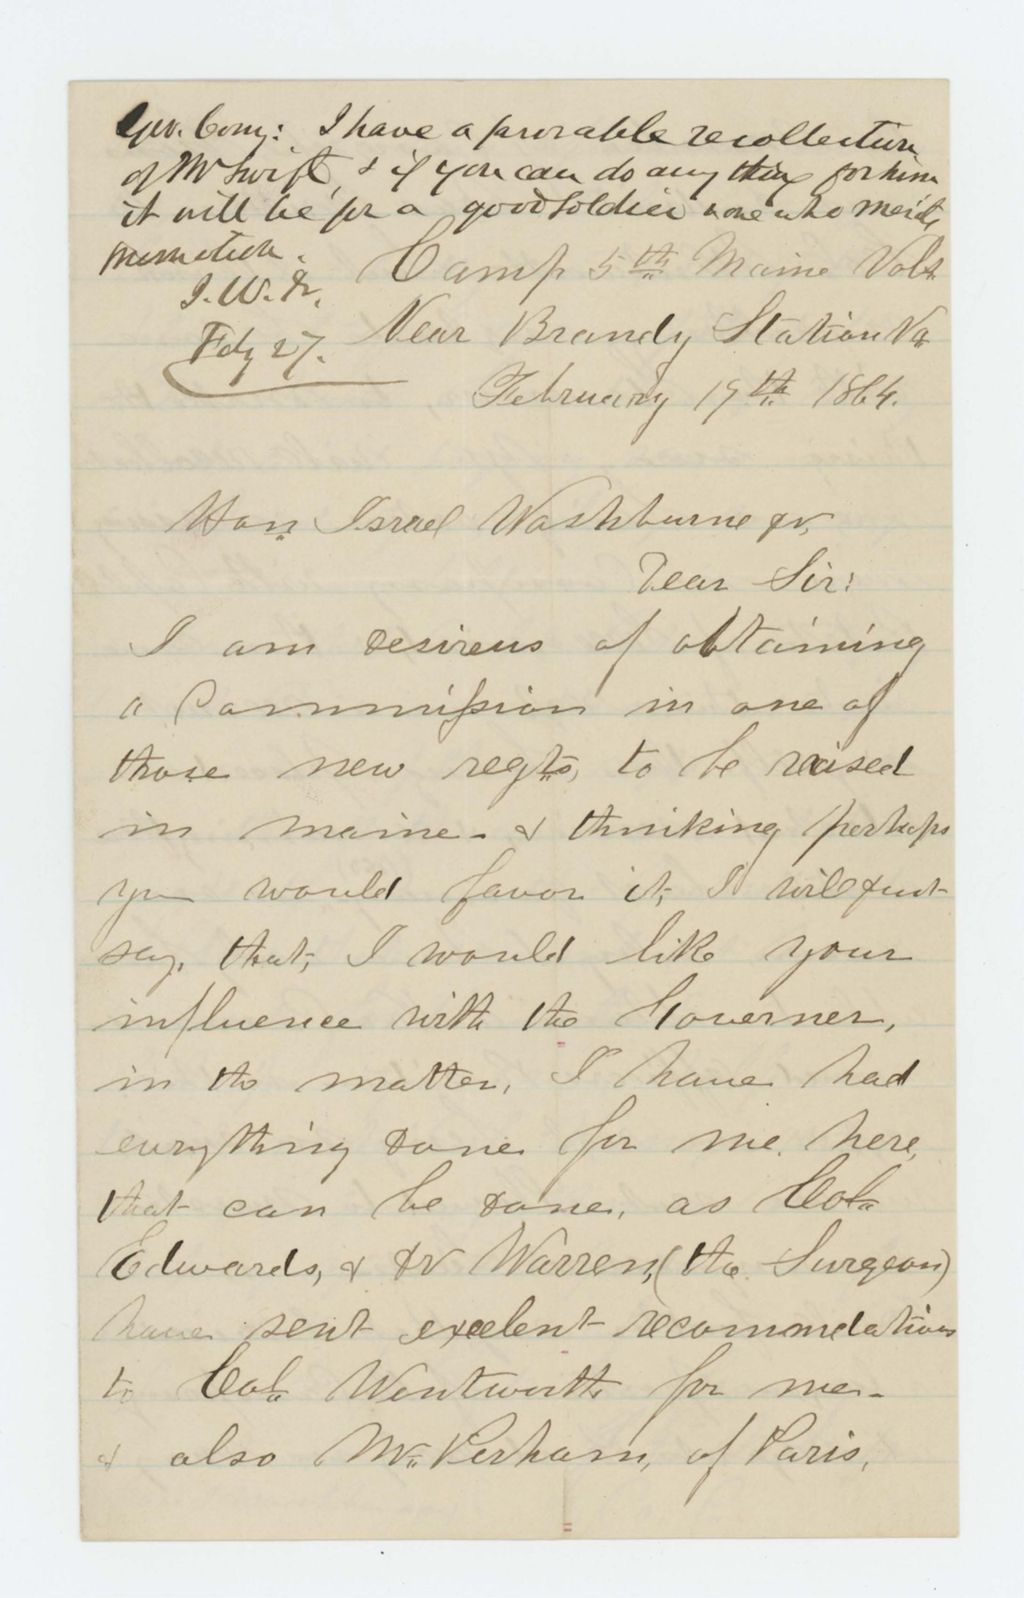 Gov. Cony: I have a favorable recollection
of Mr Swift, & if you can do any thing for him
it will be for a good soldier & one who merits
promotion.
I. W. Jr.
Feby 27.
Camp 5th Maine Vols
Near Brandy Station Va
February 19th 1864.
Hon. Israel Washburne Jr,
Dear Sir:
I am desireus of obtaining
a Commission in one of
those new regts, to be raised
in Maine - & thinking perhaps
you would favor it, I will just
say, that, I would like your
influence with the Governer,
in the matter, I have had
everything done for me here,
that can be done, as Col.
Edwards, & Dr Warren, (the Surgeon)
have sent excelent recommdations
to Col. Wentworth for me -
& also Mr. Perham, of Paris,